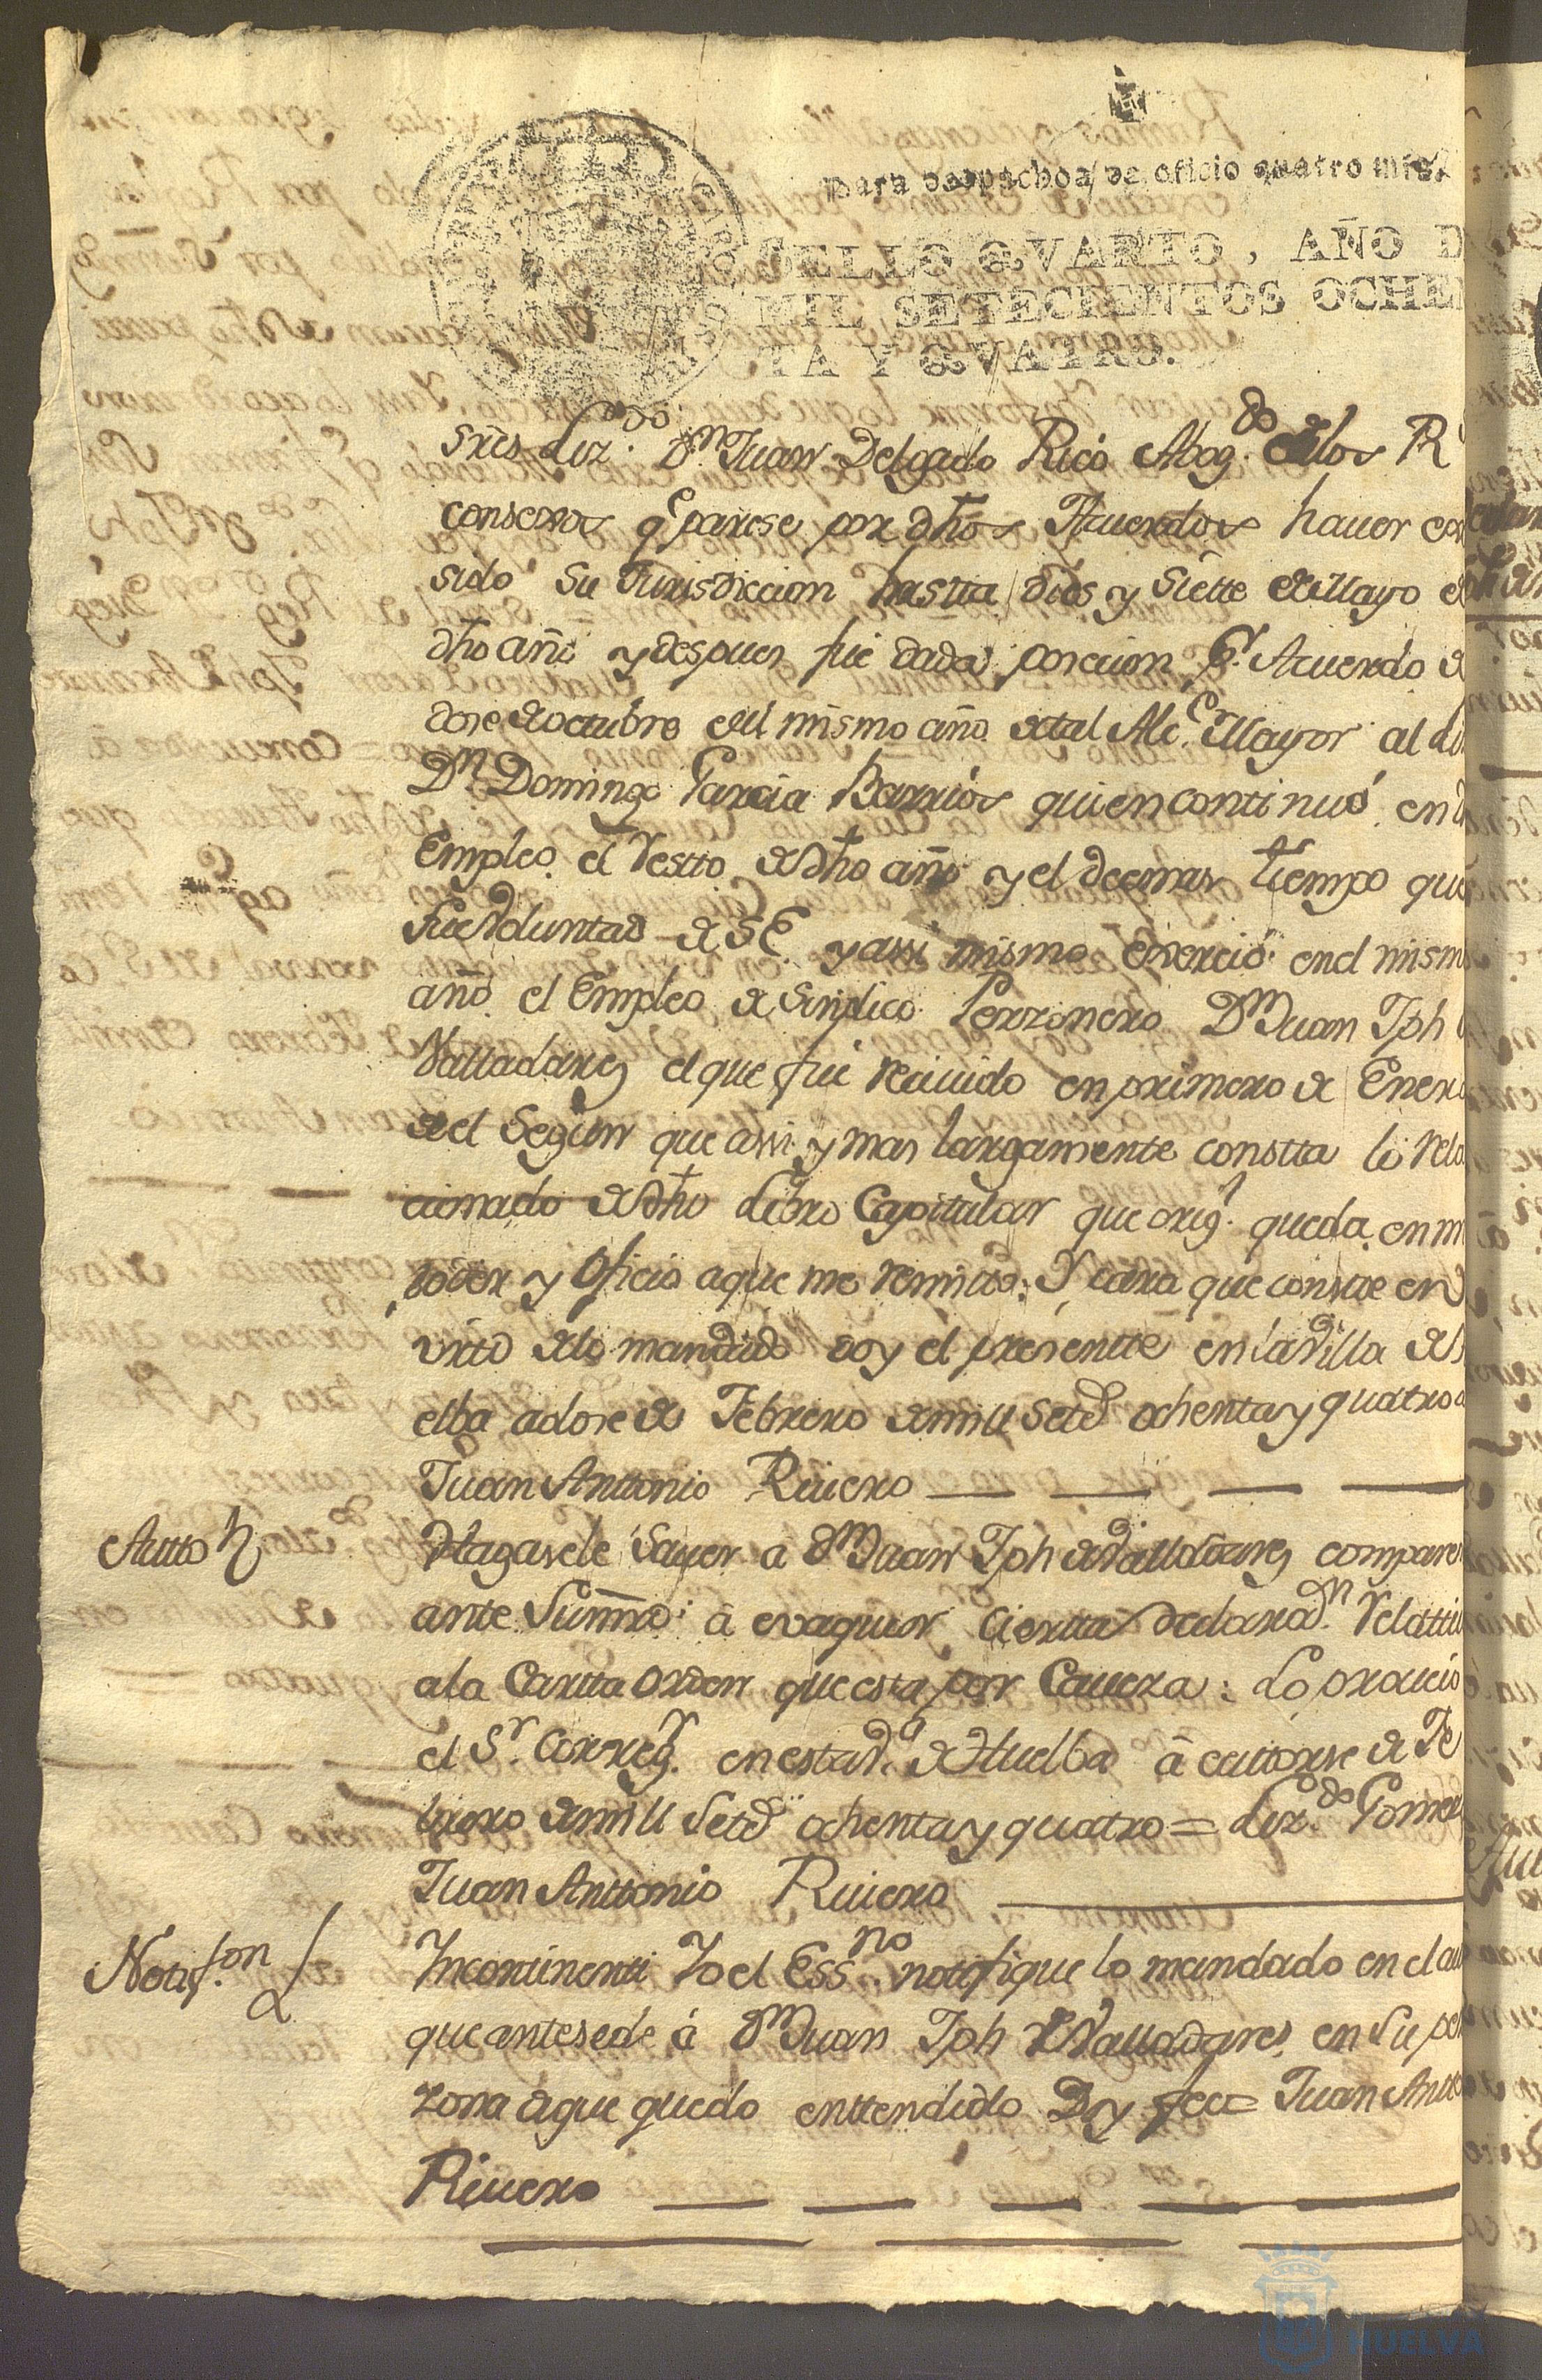 para despachos de oficio quatro mrs.
SELLO QVARTO, AÑO D
MIL SETECIENTOS OCHEN
TA Y QVATRO.
sres Liz.do Dn Juan Delgado Rico Abog.do de los R
consexos q.e parese por dhos Acuerdos hauer exer
sido su Jurisdiccion hastta dies y siette de Mayo de
dho año y despues fue dada posecion p.r Acuerdo de
dose de octubre del mismo año de tal Alc.e Mayor al Li
Dn Domingo Garcia Barrios quien continuó en d
Empleo el restto de dho año y el decmas tiempo que
fue Voluntad de S E. y assi mismo exerció en el mism
año el Empleo de Sindico Perzonero Dn Juan Jph
Valladares el que fue reciuido en primero de Enero
de el Segun que assi y mas largamente constta lo rela
cionado de dho Libro Capitular que orig.l queda en m
poder y Oficio a que me remitto: Y para que conste en
virtd de lo mandado doy el presentte en la Villa de
elba a dose de Febrero de mill Setd ochenta y quatro a
Juan Anttonio Riuero
Autto
Hagasele Sauer a Dn Juan Jph de Valladares compares
ante Su mrd: á evaquar Ciertta declarac.n relatti
a la Cartta orden que esta por Caueza: Lo proveió
el S.r Correg.r en esta V.a de Huelba á cattorse de Fe
brero de mill Setd ochenta y quatro = Liz.do Gomez
Juan Anttonio Riuero
Notif.on
Incontinentti Yo el Ess.no notifique lo mandado en el au
que antesede á Dn Juan Jph de Valladares en su per
zona de que quedo enttendido Doy fee = Juan Antto
Riuero
HUELVA